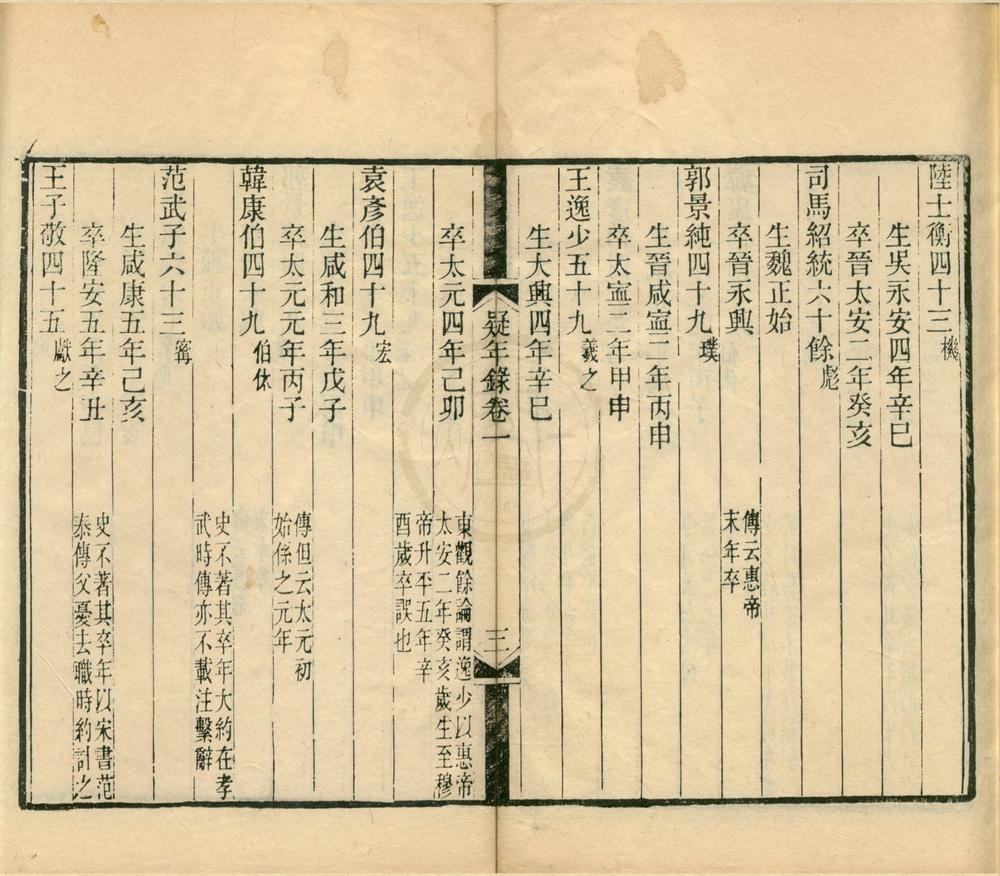 陸士衡四十三機
生吳永安四年辛巳
卒晉太安二年癸亥
司馬紹統六十餘彪
生魏正始
卒晉永興
傳云惠帝
末年卒
郭景純四十九璞
生晉咸寧二年丙申
卒太寧二年甲申
王逸少五十九羲之
生大興四年辛巳
疑年錄卷一
三
卒太元四年己卯
東觀餘論謂逸少以惠帝
太安二年癸亥歲生至穆
帝升平五年辛
酉歲卒誤也
袁彥伯四十九宏
生咸和三年戊子
卒太元元年丙子
傳但云太元初
始係之元年
韓康伯四十九伯休
史不著其卒年大約在孝
武時傳亦不載注繫辭
范武子六十三甯
生咸康五年己亥
卒隆安五年辛丑
史不著其卒年以宋書范
泰傳父憂去職時約計之
王子敬四十五獻之